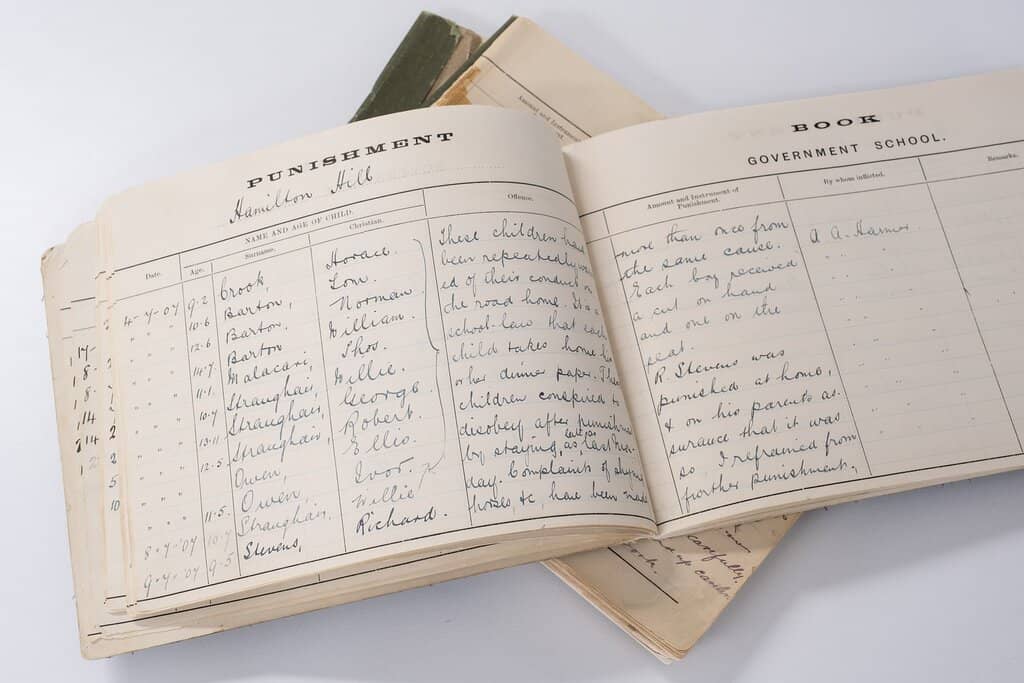 PUNISHMENT
Hamilton Hill
NAME AND AGE OF CHILD.
Date. Age. Surname. Christian. Offence.
4-7-07 9-2 Crook, Horace.
" " " 10-6 Barton, Tom.
" " " 12-6 Barton, Norman
" " " 14-7 Barton William.
" " " 11-1 Malacari, Thos.
" " " 10-7 Straughair, Willie.
" " " 13-11 Straughair, George
" " " 12-5 Straughair, Robert.
" " " Owen, Ellis.
" " " 11-5 Owen, Ivor.
8-7-'07 10-7 Straughair, Willie
9-7-'07 9-5 Stevens, Richard.
These children had
been repeatedly
ed of their conduct on
the road home. It is a
school-law that each
child takes home his
or her dinner paper. These
children conspired to
disobey after punishment
by staying, late as last
day. Complaints of
horses, &c, have been made
BOOK
GOVERNMENT SCHOOL.
Amount and Instrument of
Punishment.
By whom inflicted.
Remarks.
more than once from
the same cause.
Each boy received
a cut on hand
and one on the
seat.
R. Stevens was
punished at home,
& on his parents as
surance that it was
so, I refrained from
further punishment.
A. A.
Amount and Instrument
carefully,